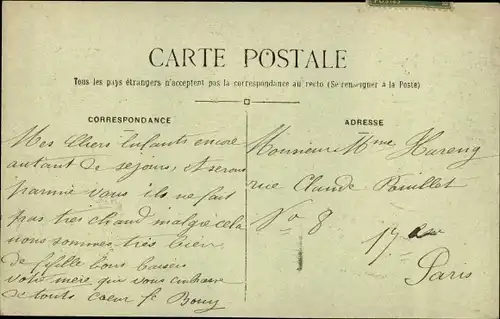 POSTES
CARTE POSTALE
Tous les pays étrangers n'acceptent pas la correspondance au recto (Se renseigner à la Poste)
CORRESPONDANCE
Mes Chers Enfants encore
autant de sejours, et serons
parmie vous ils ne fait
pas tres chaud malgre cela
nous sommes très bien
de fifille bons baisers
votre mère que vous embrasse
de touts coeur
ADRESSE
Monsieur Mme Hareng
rue Claude Pouillet
No 8
17
Paris